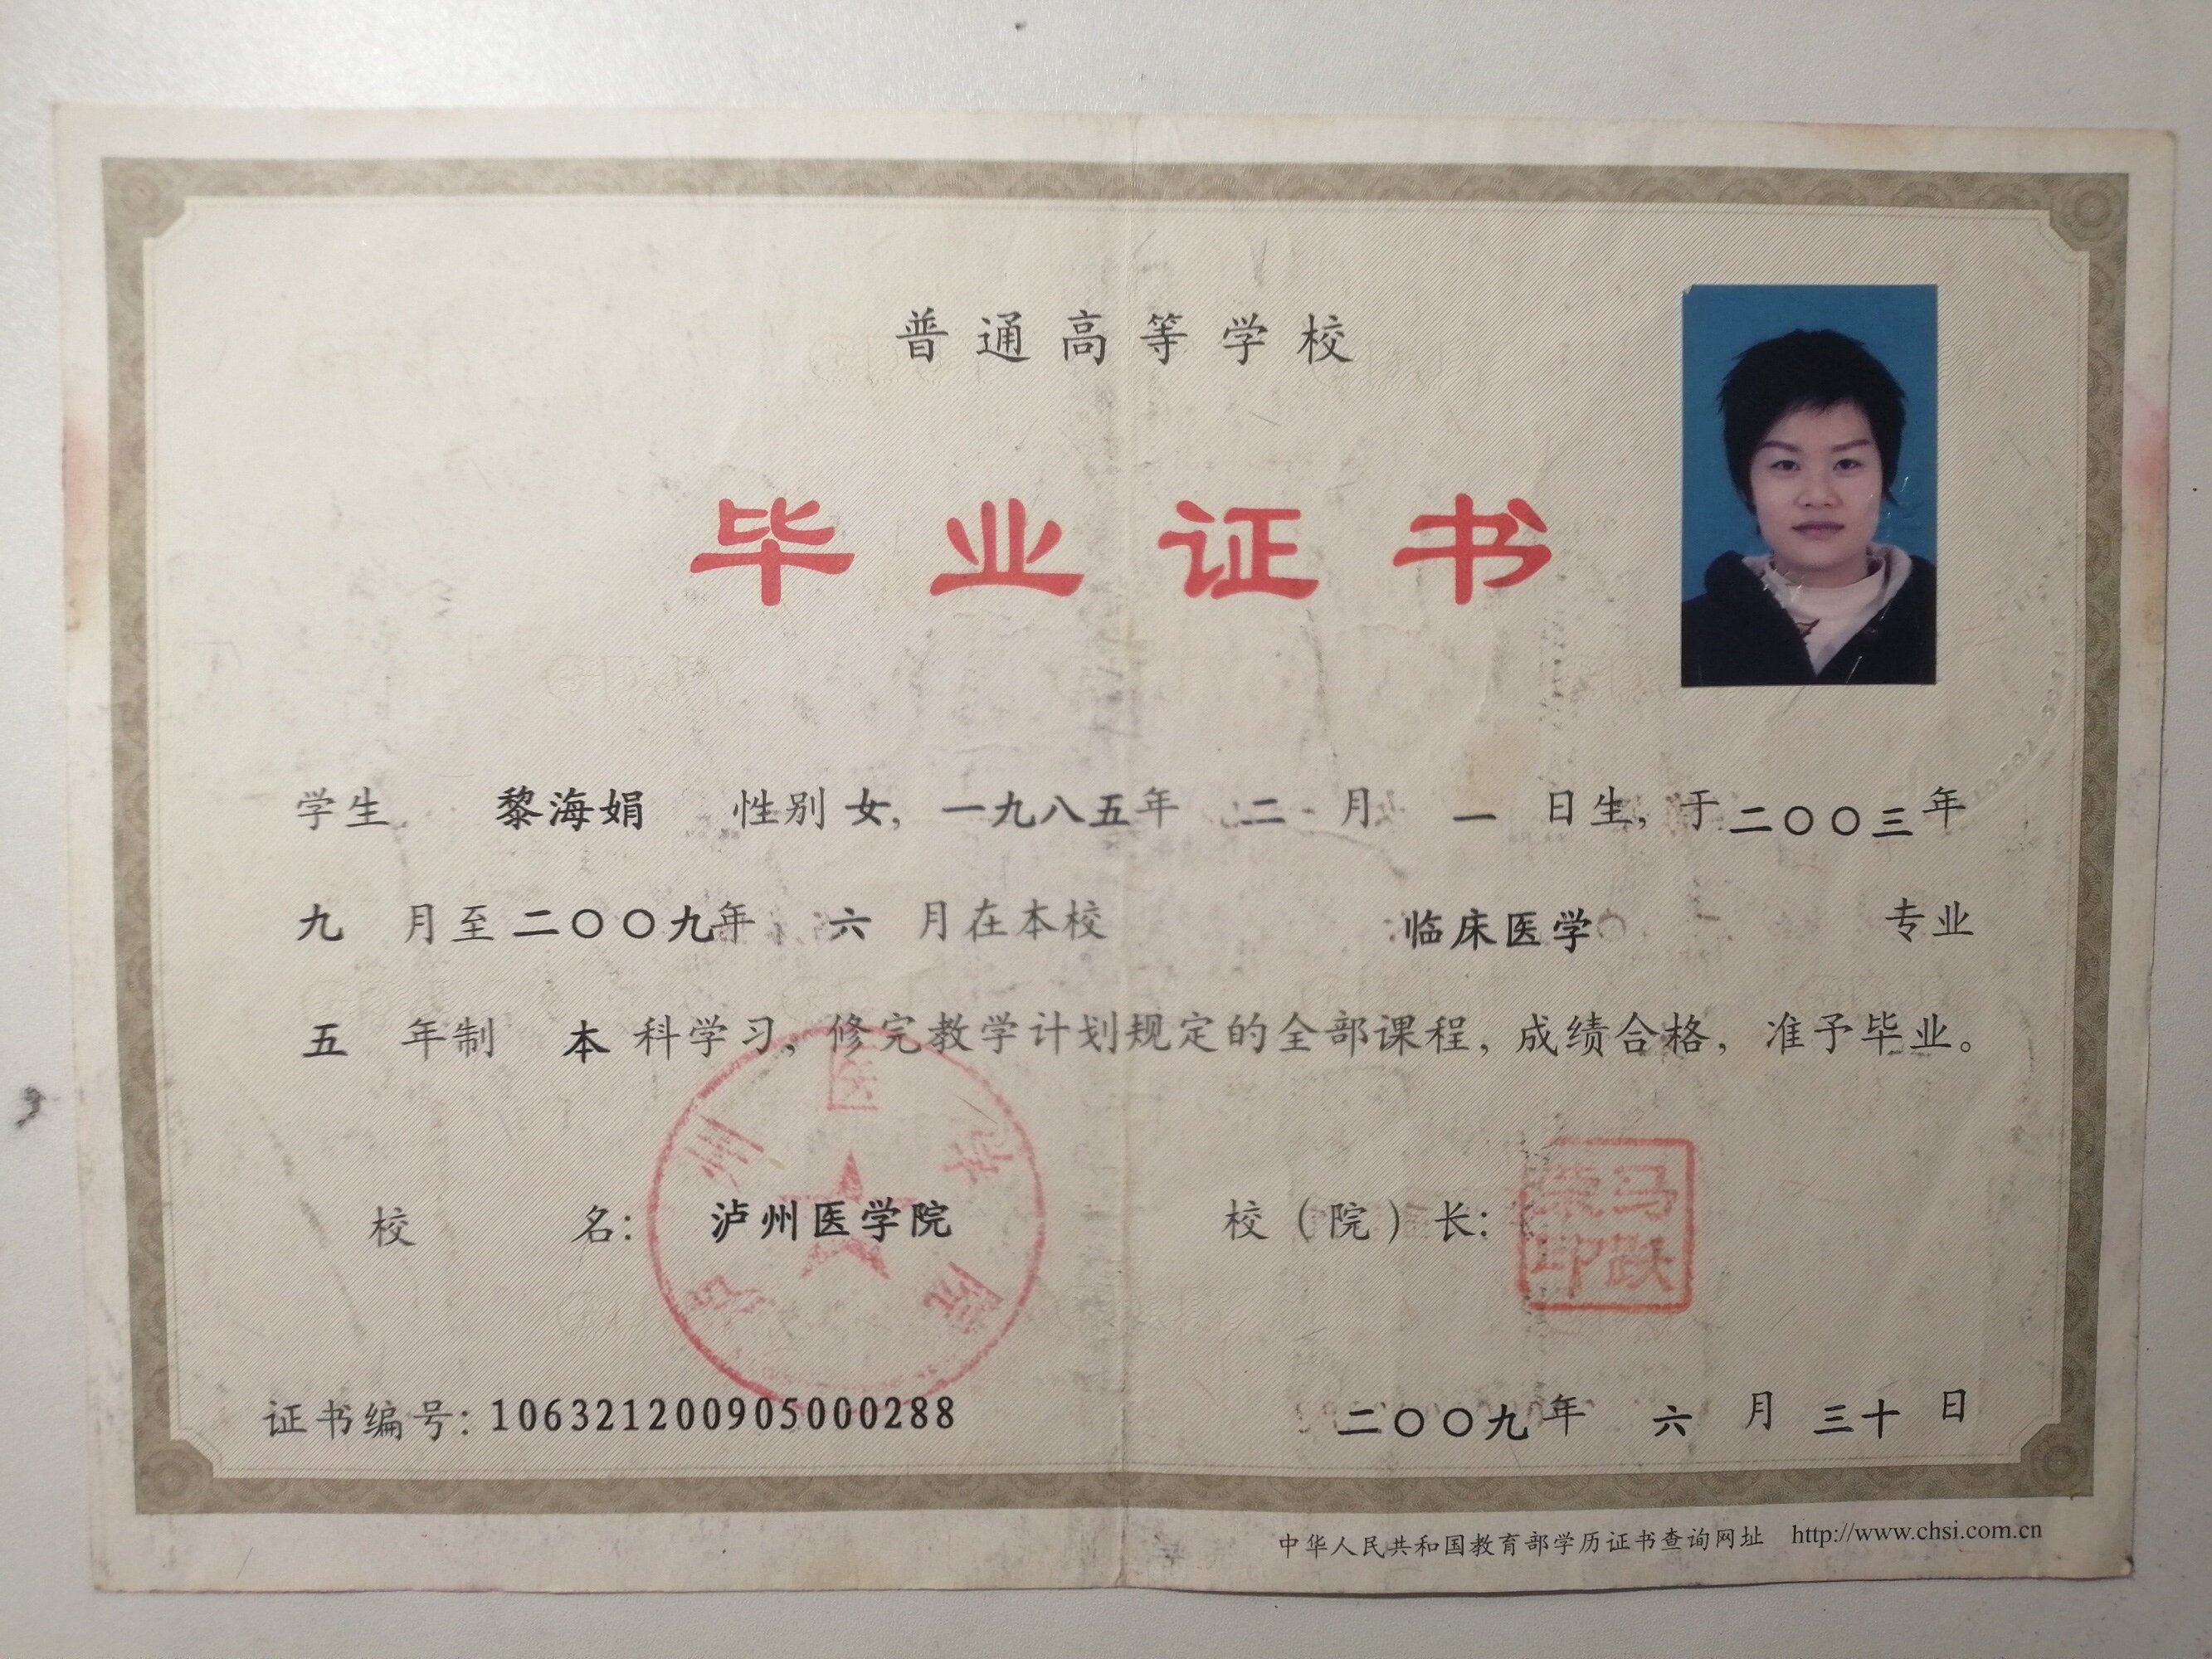 普通高等学校
毕业证书
学生 黎海娟 性别 女，一九八五年 二 月 一 日生，于二〇〇三年
九 月至二〇〇九年 六 月在本校 临床医学 专业
五 年制 本 科学习，修完教学计划规定的全部课程，成绩合格，准予毕业。
校 名：泸州医学院 校（院）长：
泸州医学院
马跃荣印
证书编号：106321200905000288 二〇〇九年 六 月 三十 日
中华人民共和国教育部学历证书查询网址 http://www.chsi.com.cn